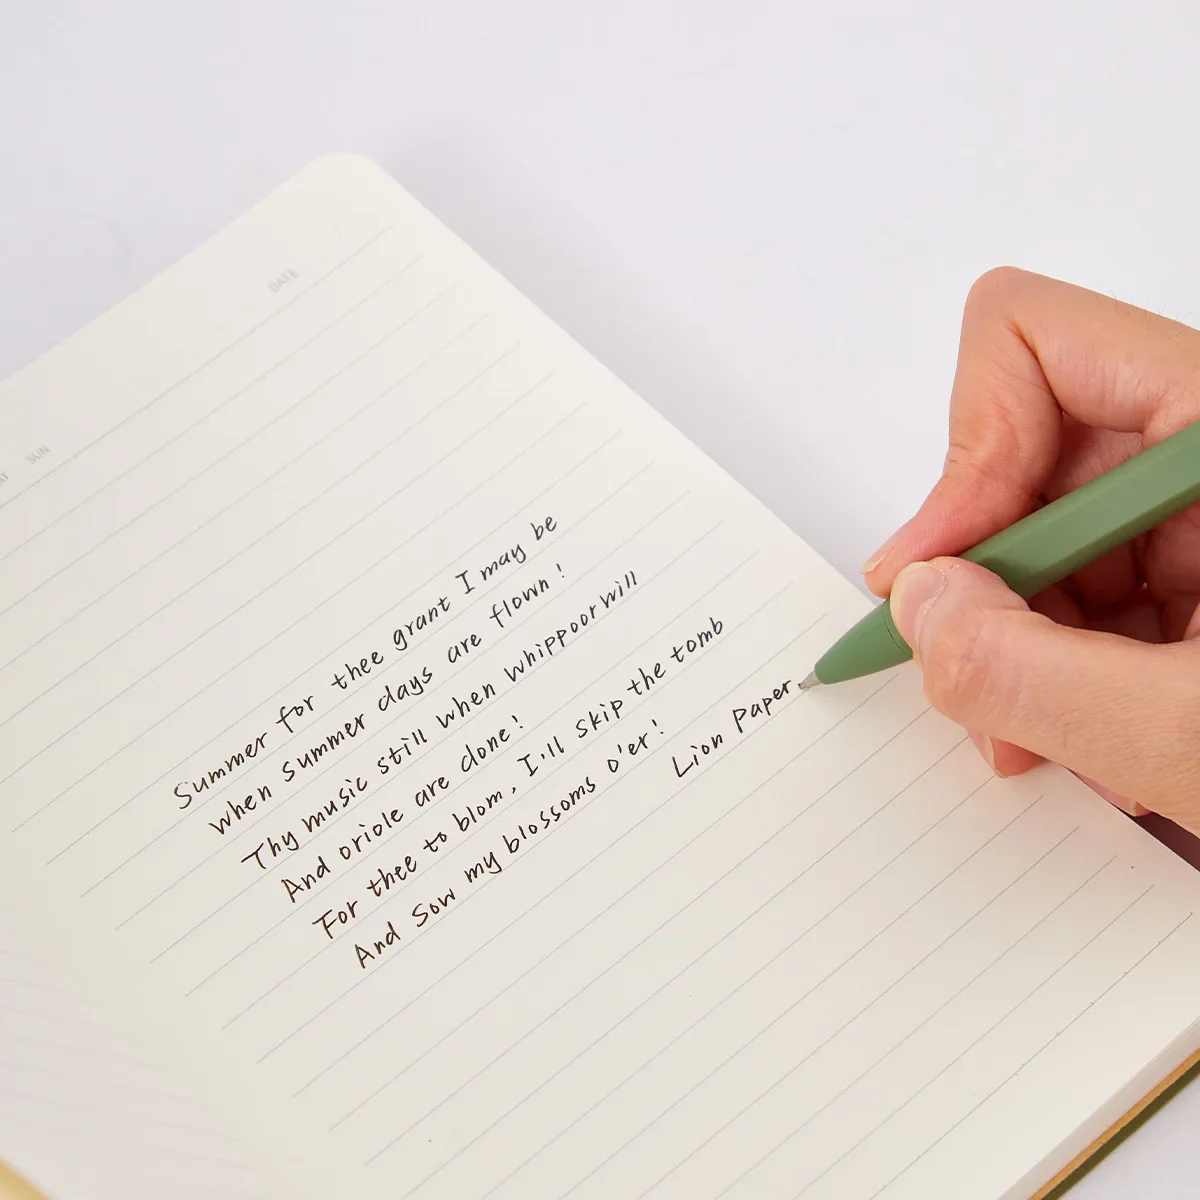 DATE
SUN
Summer for thee grant I may be
when summer days are flown!
Thy music still when whippoorwill
And oriole are done!
For thee to blom, I'll skip the tomb
And sow my blossoms o'er!
Lion Paper